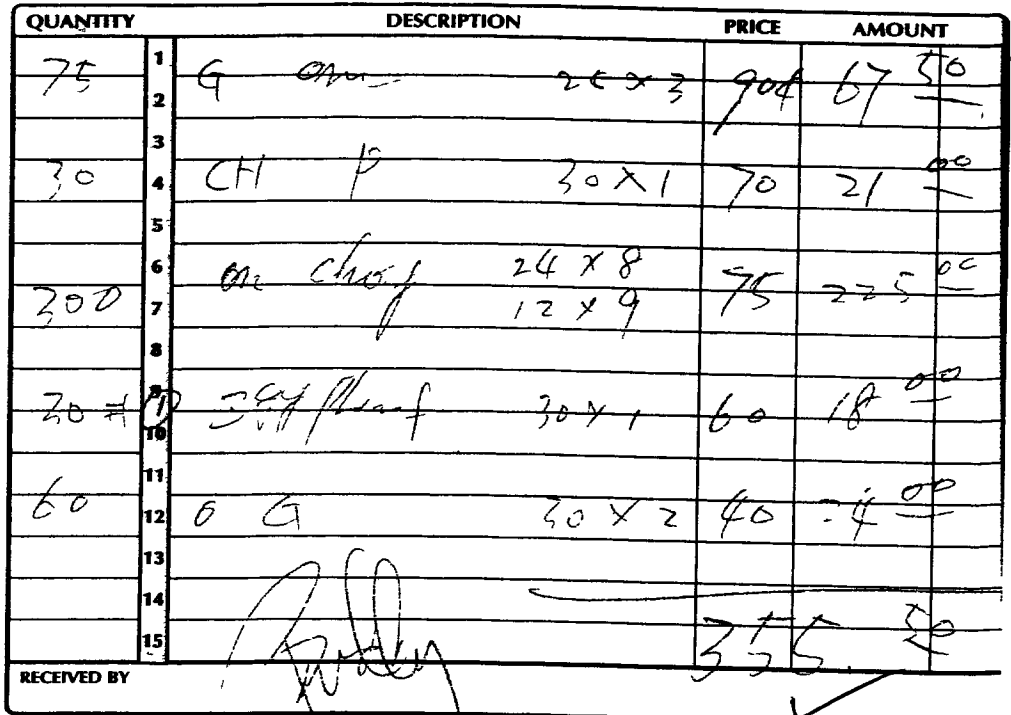 QUANTITY DESCRIPTION PRICE AMOUNT
1
75 G 25 x 3 90¢ 67 50
2
3
30 CH P 30 X 1 70 21 00
4
5
6 on choy 24 x 8
300 7 12 x 9 75 225 00
8
30 # 30 x 1 60 18 00
10
11
60 12 O G 30 X 2 40 24 00
13
14
15 355. 50
RECEIVED BY